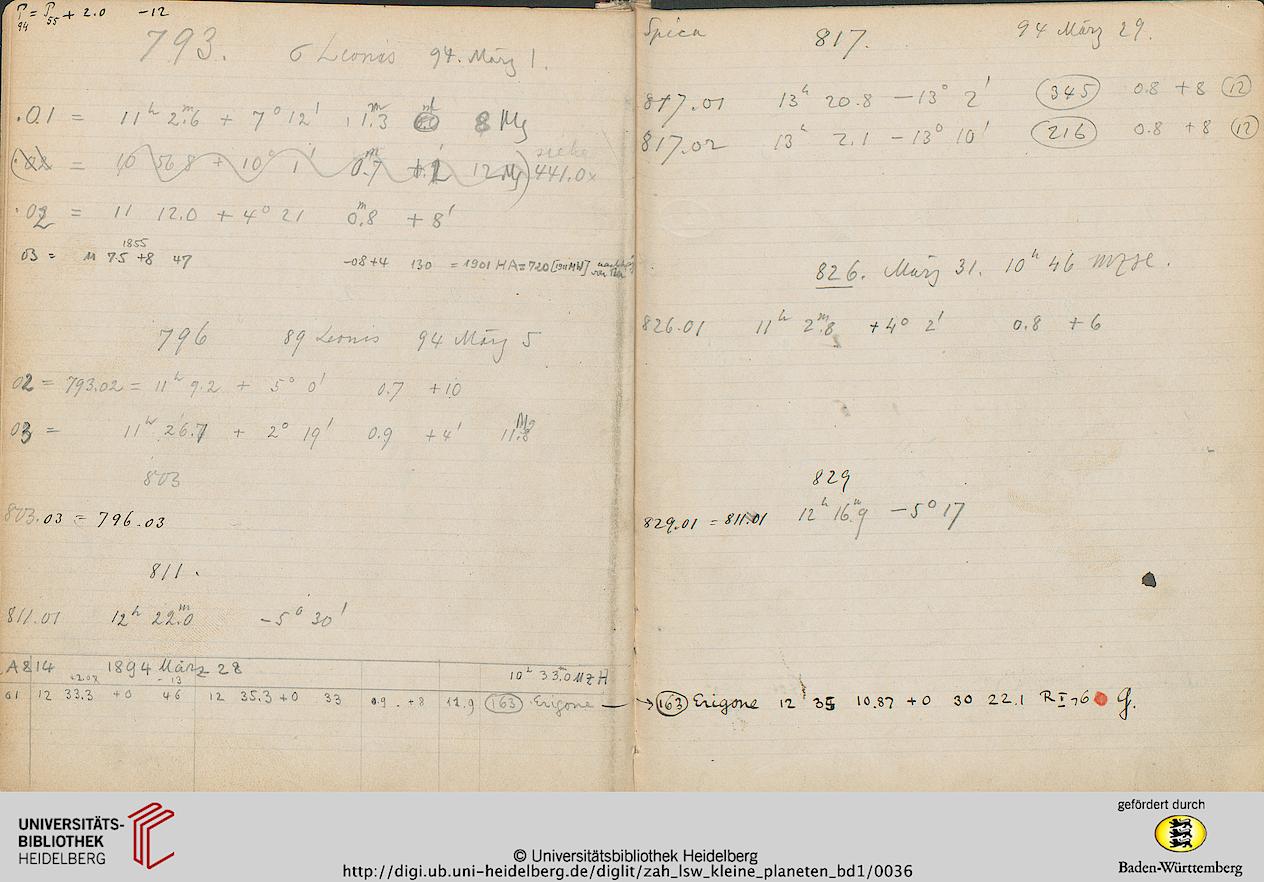 94 = 55 + 2.0 -12
793. σ Leonis 94. März 1.
.01 = 11h 2m.6 + 7° 12' 1.3m 8 Mg
= 10 56 8 + 10° 1' 0.7m 12 Mg) siehe 441.0x
.02 = 11 12.0 + 4° 21 0.8m + 8'
1855
03 = 11 7.5 +8 47 -0.8+4 130 = 1901 HA = 720 [1911 MW]
796 89 Leonis 94 März 5
02 = 793.02 = 11h 9.2 + 5° 0' 0.7 +10
03 = 11h 26.7 + 2° 19' 0.9 +4' 11.8 Mg
803
803.03 = 796.03
811.
811.01 12h 22.0m -5° 30'
A814 1894 März 28 10h 33.0m MZH
+2.08 -13
01 12 33.3 +0 46 12 35.3 +0 33 0.9 . +8 12.9 (163) Erigone
Spica 817. 94 März 29.
817.01 13h 20.8 -13° 2' (345) 0.8 +8 (12)
817.02 13h 2.1 -13° 10' (216) 0.8 +8 (12)
826. März 31. 10h 46
826.01 11h 2.8m +4° 2' 0.8 +6
829
829.01 = 811.01 12h 16.9m -5° 17
(163) Erigone 12 35 10.87 +0 30 22.1 R I 76 G.
UNIVERSITÄTS-
BIBLIOTHEK
HEIDELBERG
© Universitätsbibliothek Heidelberg
http://digi.ub.uni-heidelberg.de/diglit/zah_lsw_kleine_planeten_bd1/0036
gefördert durch
Baden-Württemberg